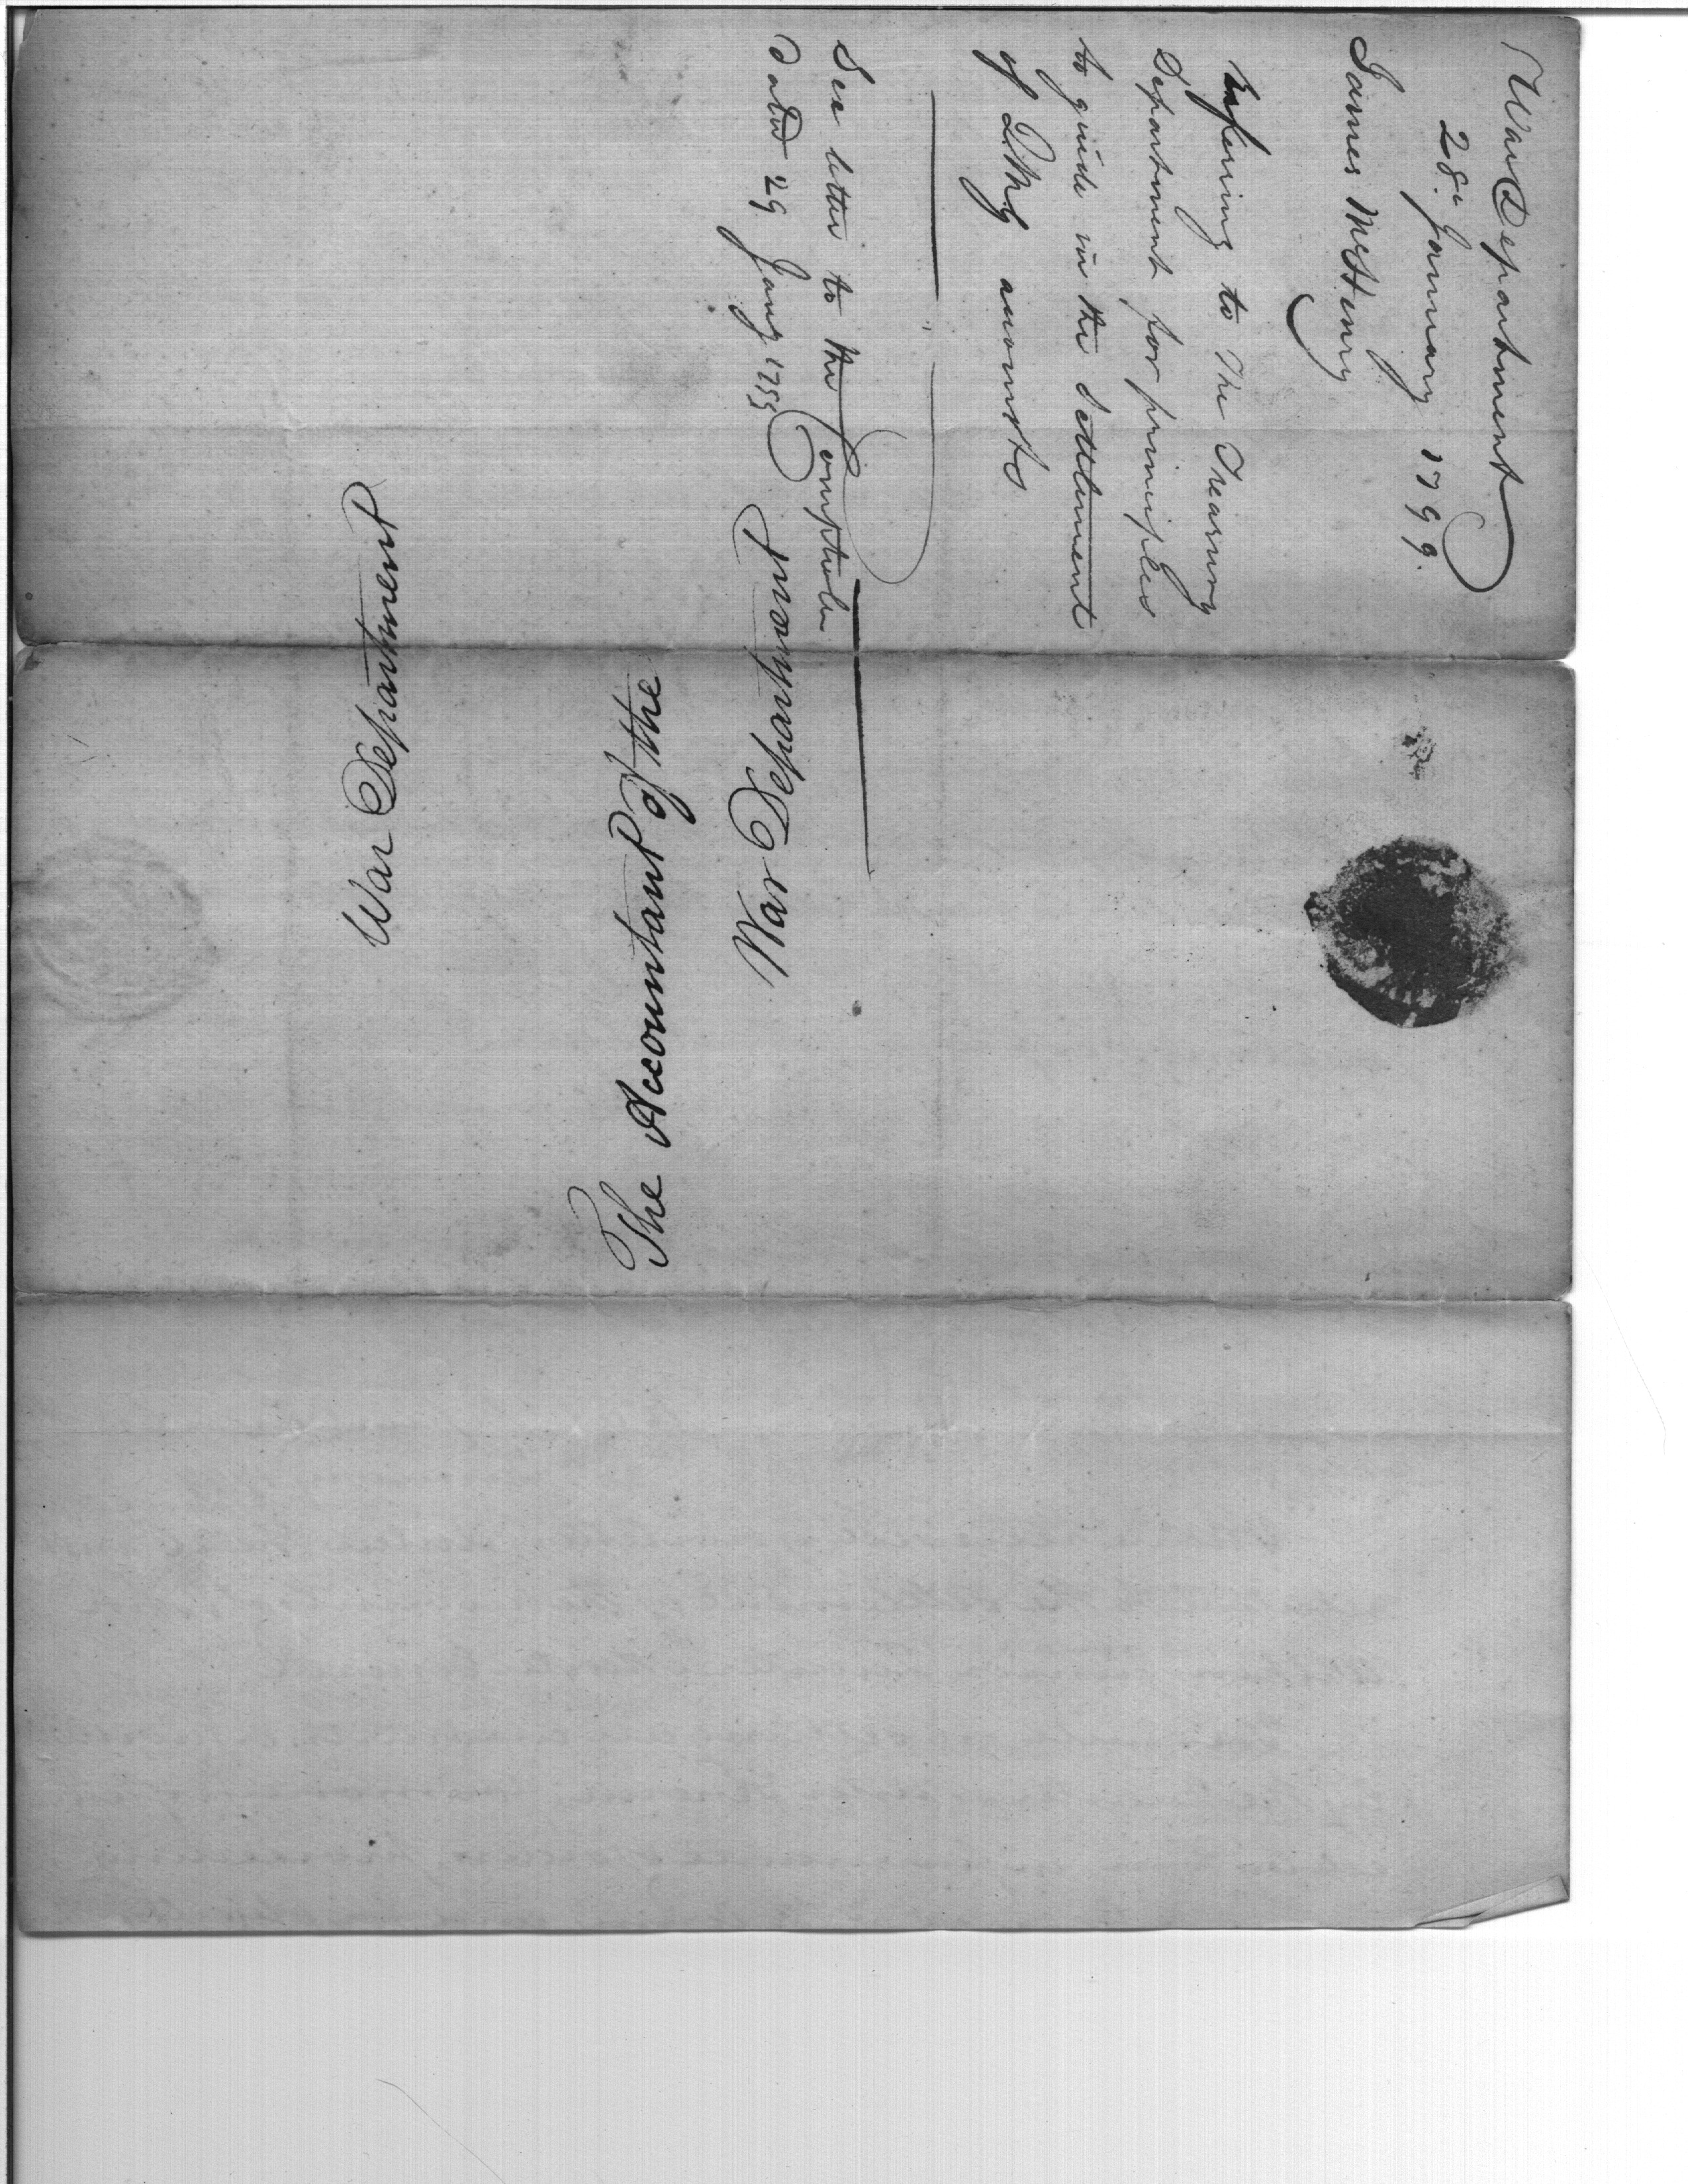 War Department
28. January 1799.
James McHenry
refering to the Treasury
Department for principles
to guide in the settlement
of QMG accounts
See letter to the Comptroller
dated 29 Jany 1799
War Department
The Accountant of the
War Department